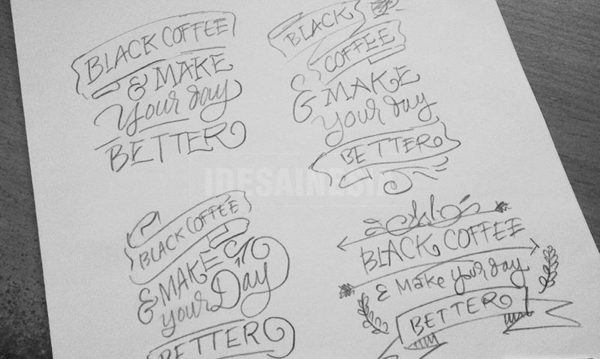 BLACK COFFEE
& MAKE
Your day
BETTER
BLACK
COFFEE
& MAKE
your day
BETTER
BLACK COFFEE
& MAKE
your Day
BETTER
BLACK COFFEE
& Make your day
BETTER